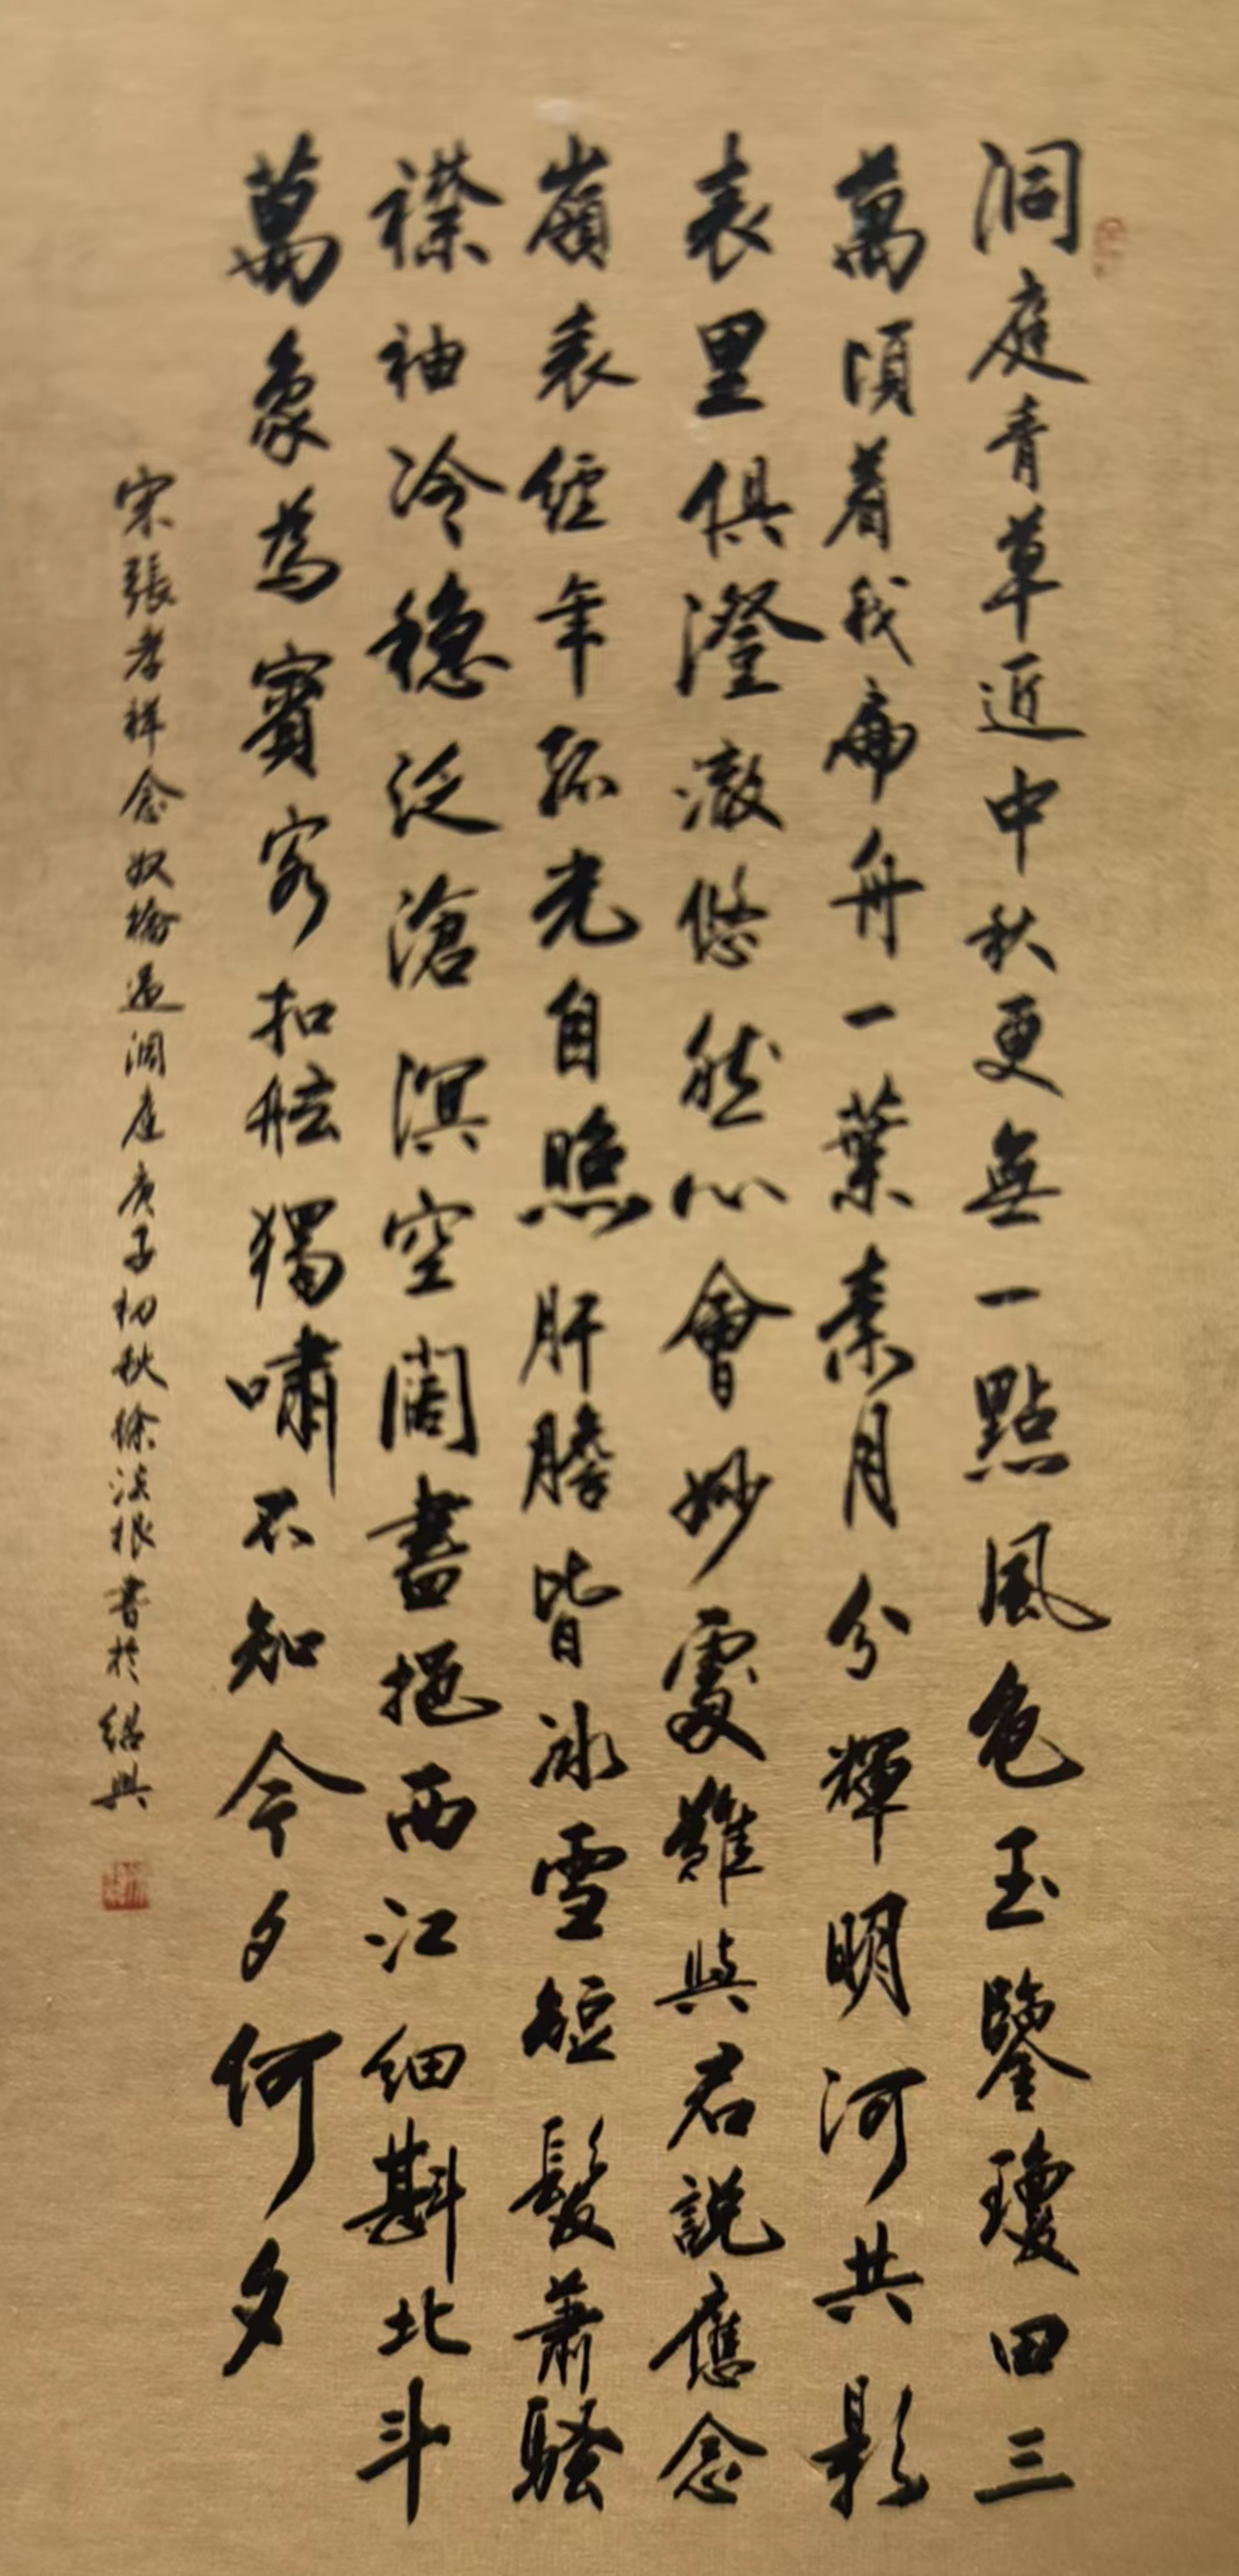 洞庭青草近中秋更無一點風色玉鑒瓊田三
萬頃着我扁舟一葉素月分輝明河共影
表里俱澄澈悠然心會妙處難與君說應念
嶺表經年孤光自照肝膽皆冰雪短髮蕭騷
襟袖冷穩泛滄溟空闊盡挹西江細斟北斗
萬象為賓客扣舷獨嘯不知今夕何夕
宋張孝祥念奴橋過洞庭庚子初秋徐法根書於紹興